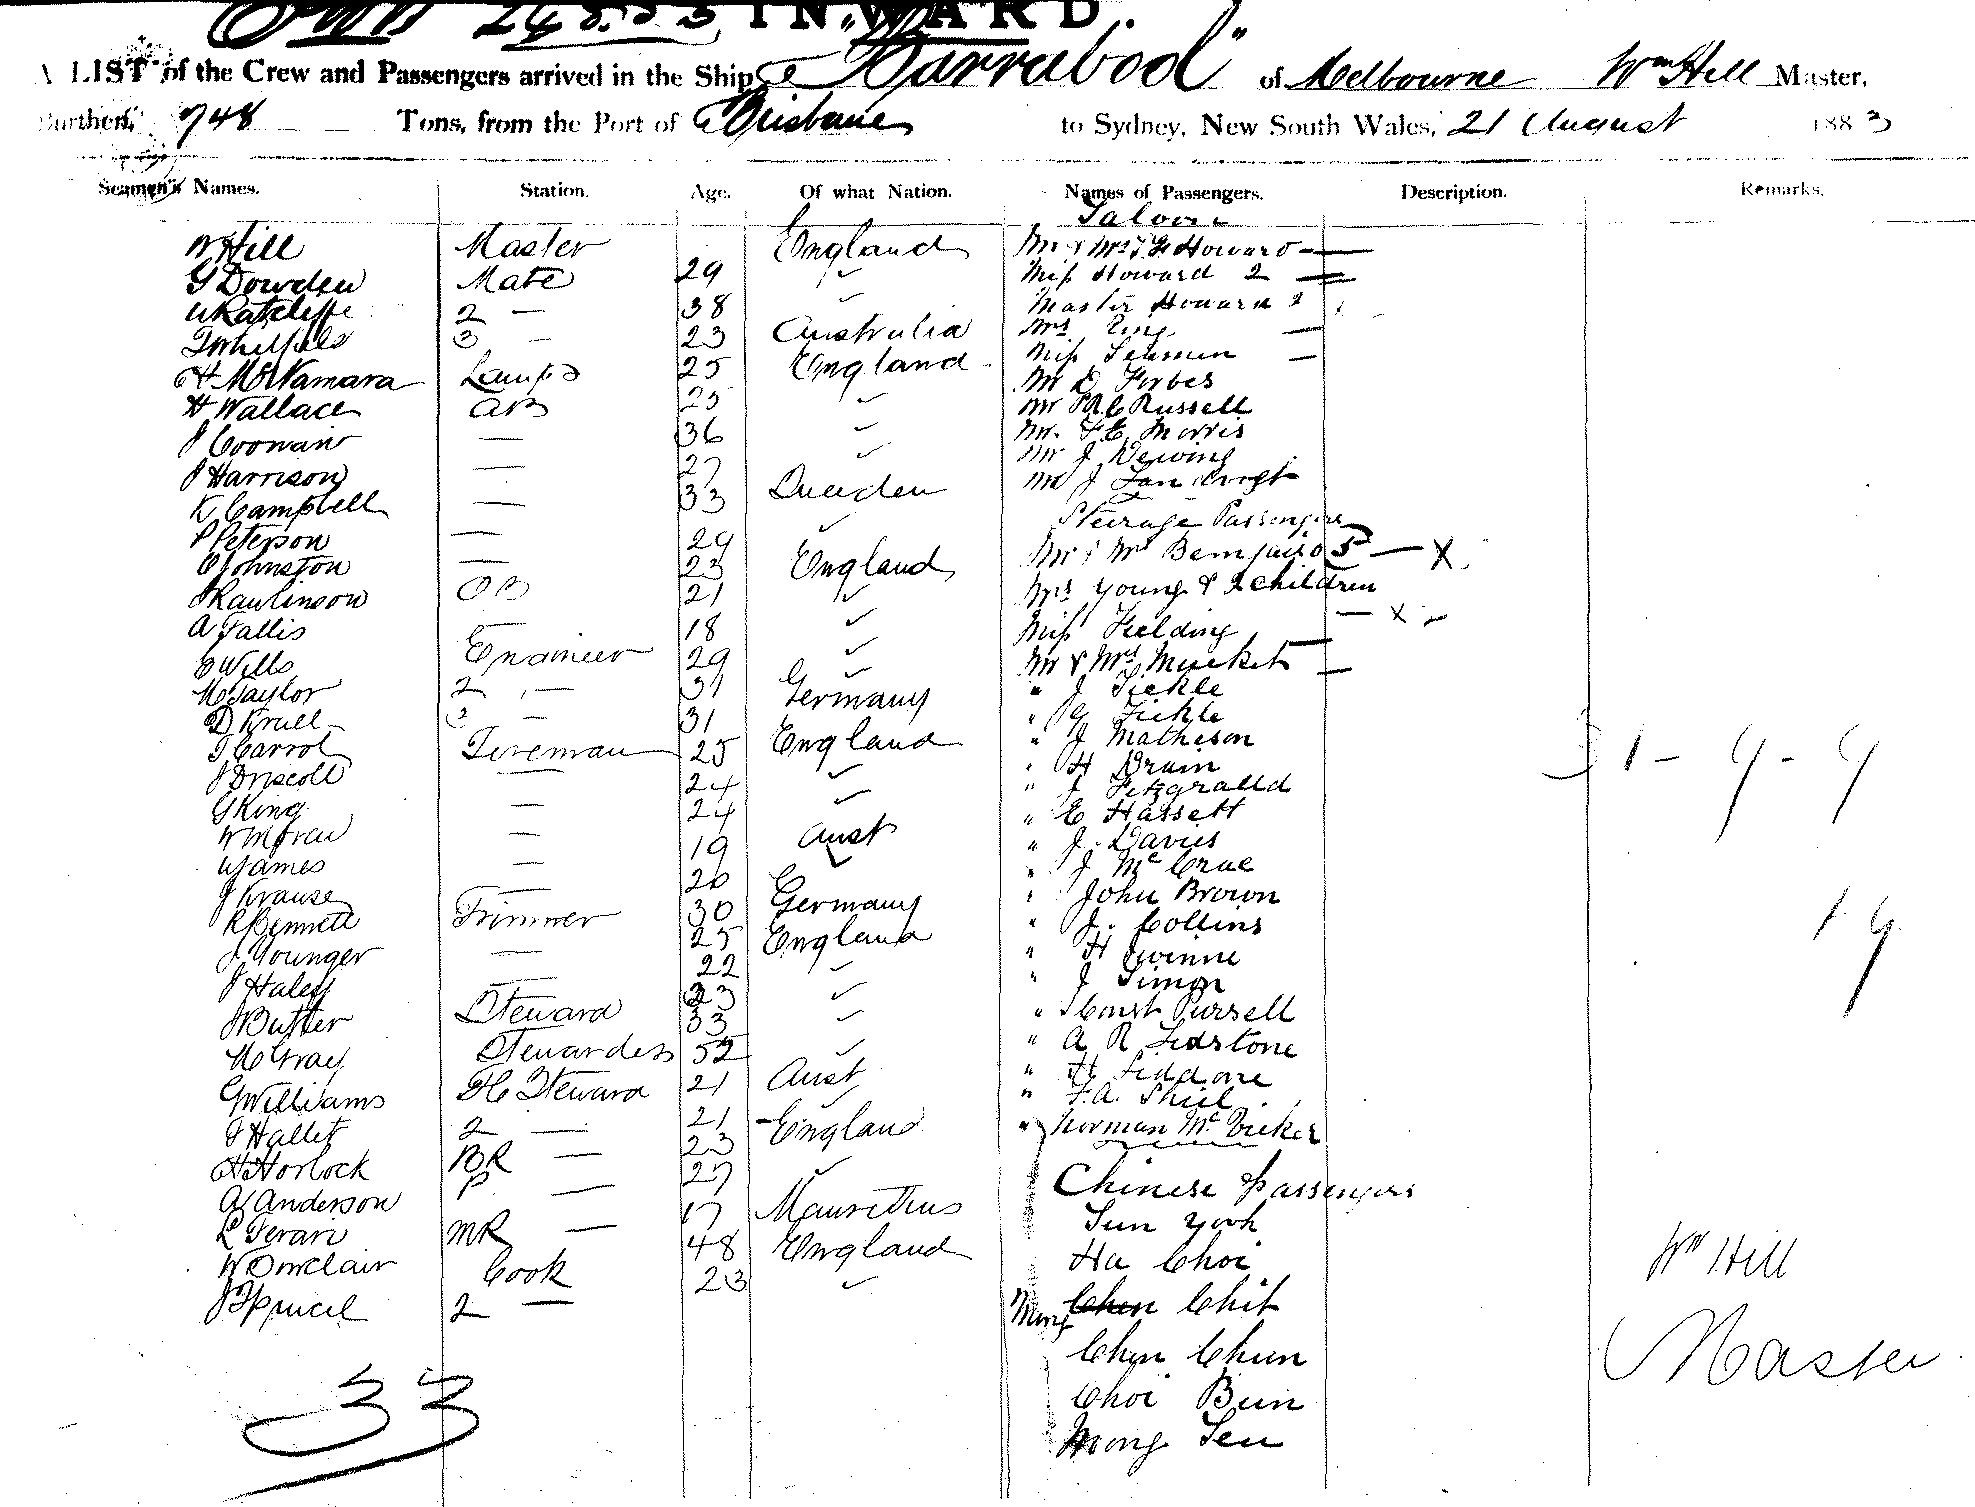 INWARD.
A LIST of the Crew and Passengers arrived in the Ship "Barrabool" of Melbourne Wm Hill Master,
Burthen, 748 Tons, from the Port of Brisbane to Sydney, New South Wales, 21 August 1883
Seamen's Names. Station. Age. Of what Nation. Names of Passengers. Description. Remarks.
Saloon
W Hill Master England Mr & Mrs Howard
G Dowden Mate 29 ✓ Miss Howard 2
W Ratcliffe 2 — 38 ✓ Master Howard 2
3 — 23 Australia Mrs
H McNamara Lamps 25 England Miss
H Wallace AB 25 ✓ Mr D Forbes
J — 36 ✓ Mr Russell
J Harrison — 27 ✓ Mr F. E. Morris
K Campbell — 33 Sweden Mr J Dewing
P Peterson — 29 ✓ Mr J
O Johnston — 23 England Steerage Passengers
J Rawlinson OS 21 ✓ Mr & Mrs 5 — X
A Fallis — 18 ✓ Mrs Young & 2 children — X
E Wills Engineer 29 ✓ Miss Fielding
M Taylor 2 — 31 Germany Mr & Mrs
D Krull 3 — 31 England " J Tickle
T Carrol Fireman 25 ✓ " G Tickle
J Driscoll — 24 ✓ " J Matheson
G King — 24 Aust " H
W Moran — 19 ✓ " J Fitzgrald
W James — 20 Germany " E Hassett
J Krause — 30 England " J. Davies
R Bennett Trimmer 25 ✓ " J McCrae
J Younger — 22 ✓ " John Brown
J Haley — 23 ✓ " J. Collins
J Butler Steward 33 ✓ " H
M Gray Stewardess 52 Aust " J Simon
G Williams FC Steward 21 ✓ " Const Purssell
J Hallet 2 — 21 England " A R
H Horlock BR — 23 ✓ " H
A Anderson P — 27 Mauritius " F. A. Shiel
L Ferari MR — 17 England " Norman Mc
W Sinclair Cook 48 ✓ Chinese Passengers
J 2 — 23 Sun
Ha Choi
Mong Chit
Chen Chun
Choi Bun
Mong Sen
33
31 - 9 - 9
19
Wm Hill
Master